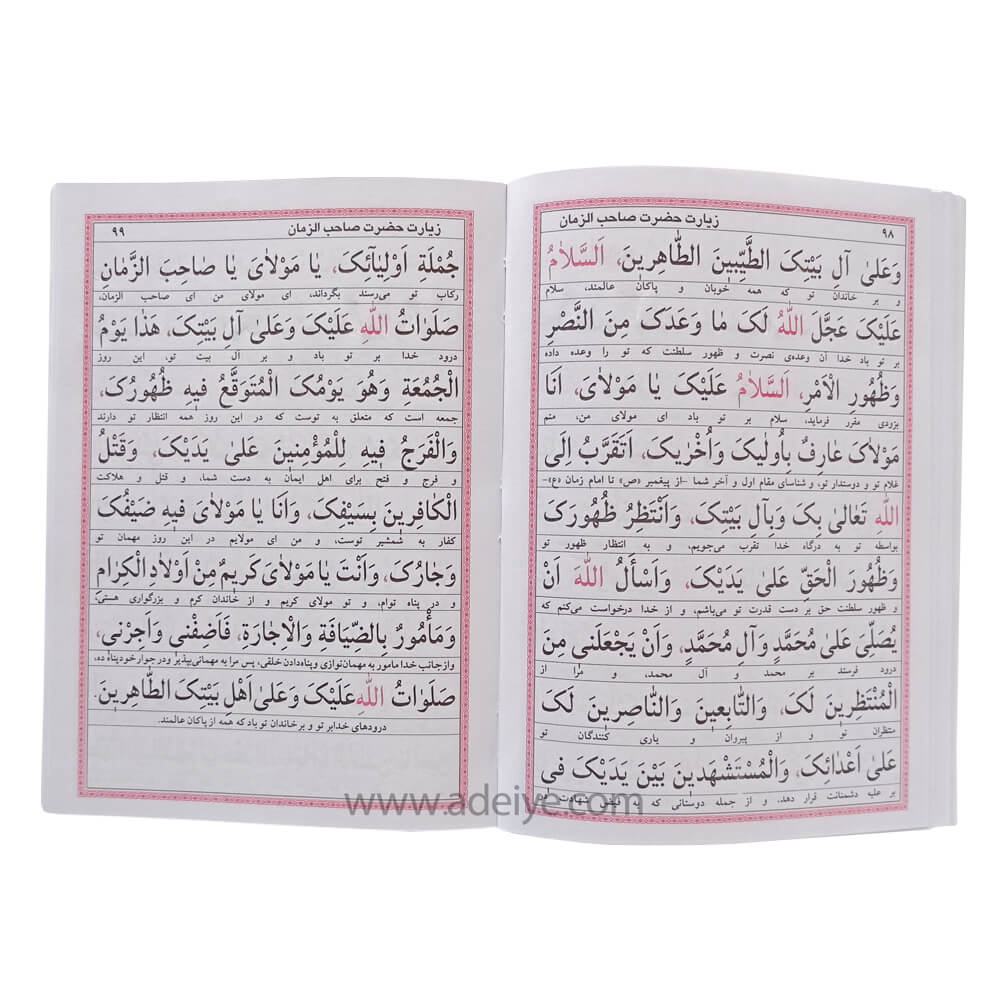 ۹۸
زیارت حضرت صاحب الزمان
وَعَلیٰ آلِ بَیْتِکَ الطَّیِّبینَ الطّاهِرینَ، اَلسَّلامُ
و بر خاندان تو که همه خوبان و پاکان عالمند، سلام
عَلَیْکَ عَجَّلَ اللّٰهُ لَکَ ما وَعَدَکَ مِنَ النَّصْرِ
بر تو باد خدا آن وعده‌ی نصرت و ظهور سلطنت که تو را وعده داده
وَظُهُورِ الْاَمْرِ، اَلسَّلامُ عَلَیْکَ یا مَوْلایَ، اَنَا
بزودی مقرر فرماید، سلام بر تو باد ای مولای من، منم
مَوْلاکَ عارِفٌ بِاُولیٰکَ وَاُخْرٰیکَ، اَتَقَرَّبُ اِلَی
غلام تو و دوستدار تو، و شناسای مقام اول و آخر شما -از پیغمبر «ص» تا امام زمان «ع»-
اللّٰهِ تَعالیٰ بِکَ وَبِآلِ بَیْتِکَ، وَاَنْتَظِرُ ظُهُورَکَ
بواسطه تو به درگاه خدا تقرب می‌جویم، و به انتظار ظهور تو
وَظُهُورَ الْحَقِّ عَلیٰ یَدَیْکَ، وَاَسْأَلُ اللّٰهَ اَنْ
و ظهور سلطنت حق بر دست قدرت تو می‌باشم، و از خدا درخواست می‌کنم که
یُصَلِّیَ عَلیٰ مُحَمَّدٍ وَآلِ مُحَمَّدٍ، وَاَنْ یَجْعَلَنی مِنَ
درود فرستد بر محمد و آل محمد، و مرا از
الْمُنْتَظِرینَ لَکَ، وَالتّابِعینَ وَالنّاصِرینَ لَکَ
منتظران تو و از پیروان و یاری کنندگان تو
عَلیٰ اَعْدائِکَ، وَالْمُسْتَشْهَدینَ بَیْنَ یَدَیْکَ فی
بر علیه دشمنانت قرار دهد، و از جمله دوستانی که به فیض شهادت در
زیارت حضرت صاحب الزمان
۹۹
جُمْلَةِ اَوْلِیٰآئِکَ، یا مَوْلایَ یا صاحِبَ الزَّمانِ
رکاب تو می‌رسند بگرداند، ای مولای من ای صاحب الزمان،
صَلَواتُ اللّٰهِ عَلَیْکَ وَعَلیٰ آلِ بَیْتِکَ، هَذا یَوْمُ
درود خدا بر تو باد و بر آل بیت تو، این روز
الْجُمُعَةِ وَهُوَ یَوْمُکَ الْمُتَوَقَّعُ فیهِ ظُهُورُکَ،
جمعه است که متعلق به توست که در این روز همه انتظار تو دارند
وَالْفَرَجُ فیهِ لِلْمُؤْمِنینَ عَلیٰ یَدَیْکَ، وَقَتْلُ
و فرج و فتح برای اهل ایمان به دست شما، و قتل و هلاکت
الْکافِرینَ بِسَیْفِکَ، وَاَنَا یا مَوْلایَ فیهِ ضَیْفُکَ
کفار به شمشیر توست، و من ای مولایم در این روز مهمان تو
وَجارُکَ، وَاَنْتَ یا مَوْلایَ کَریمٌ مِنْ اَوْلادِ الْکِرامِ
و در پناه توام، و تو مولای کریم و از خاندان کرم و بزرگواری هستی،
وَمَأْمُورٌ بِالضِّیافَةِ وَالْاِجارَةِ، فَاَضِفْنی وَاَجِرْنی،
و از جانب خدا مامور به مهمان‌نوازی و پناه دادن خلقی، پس مرا به مهمانی بپذیر و در جوار خود پناه ده،
صَلَواتُ اللّٰهِ عَلَیْکَ وَعَلیٰ اَهْلِ بَیْتِکَ الطّاهِرینَ.
درودهای خدا بر تو و بر خاندان تو باد که همه از پاکان عالمند.
www.adeiye.com